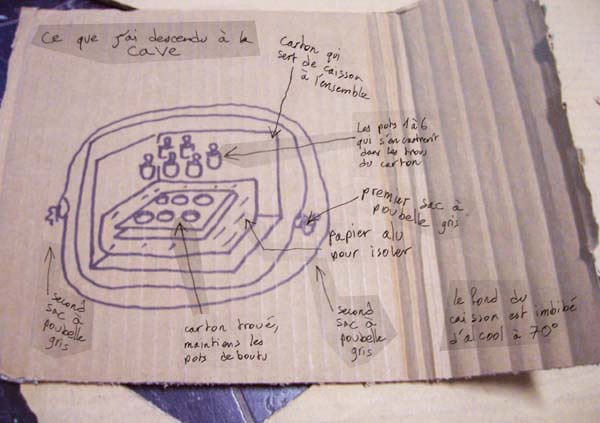 Ce que j'ai descendu à la
cave
carton qui
sert de caisson
à l'ensemble
Les pots 1 à 6
qui s'encastrent
dans les trous
du carton
premier sac à
poubelle gris
papier alu
pour isoler
second
sac à
poubelle
gris
carton troué,
maintiens les
pots debouts
second
sac à
poubelle
gris
le fond du
caisson est imbibé
d'alcool à 70°